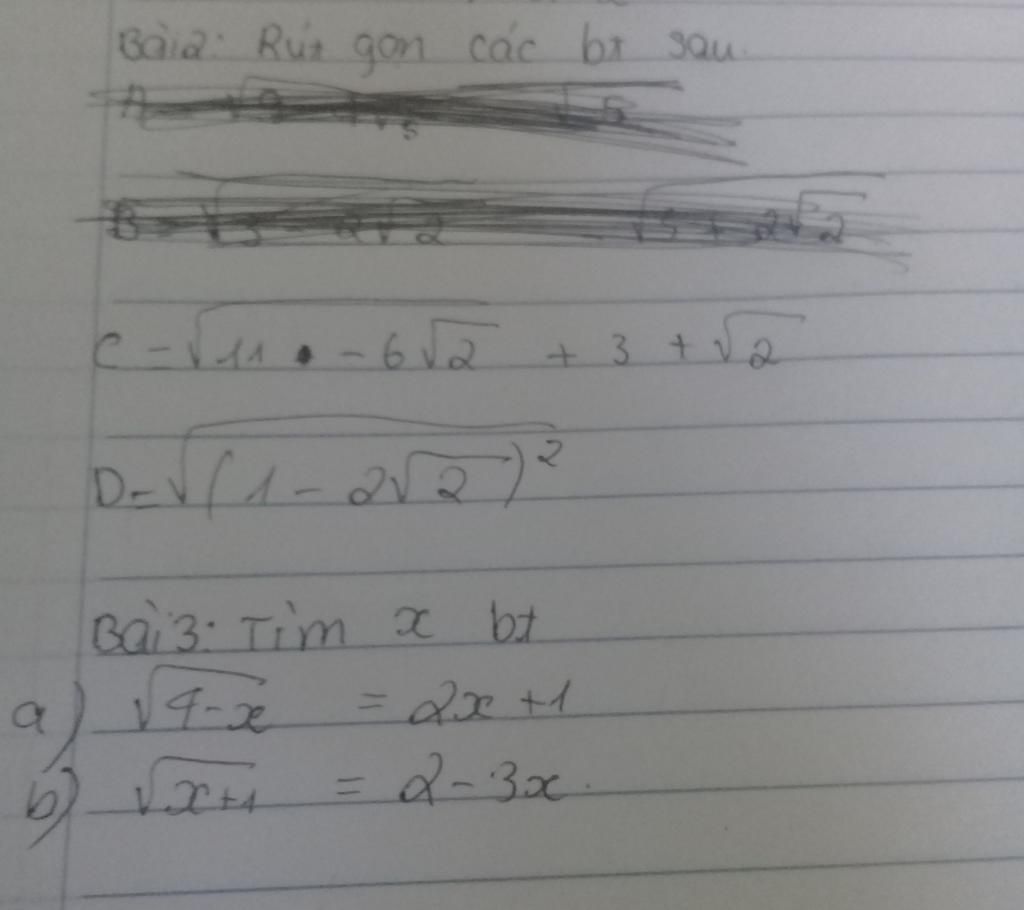 Bài2: Rút gọn các bt sau.
C = √11 - 6√2 + 3 + √2
D = √(1 - 2√2)²
Bài3: Tìm x bt
a) √4-x = 2x+1
b) √x+1 = 2-3x.